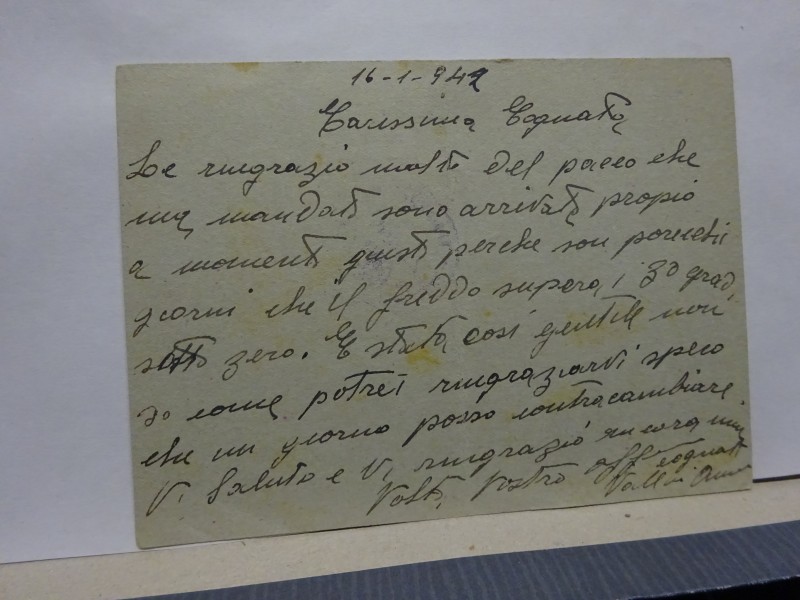 16-1-942
Carissima Cognata
Le ringrazio molto del pacco che
mi mandato sono arrivata propio
a momenti giusti perche son parechi
giorni che il freddo supera i 30 gradi
sotto zero. E stata cosi gentile non
so come potrei ringraziarvi spero
che un giorno posso contracambiare
Vi Saluto e Vi ringrazio ancora
Volte Vostro aff cognato